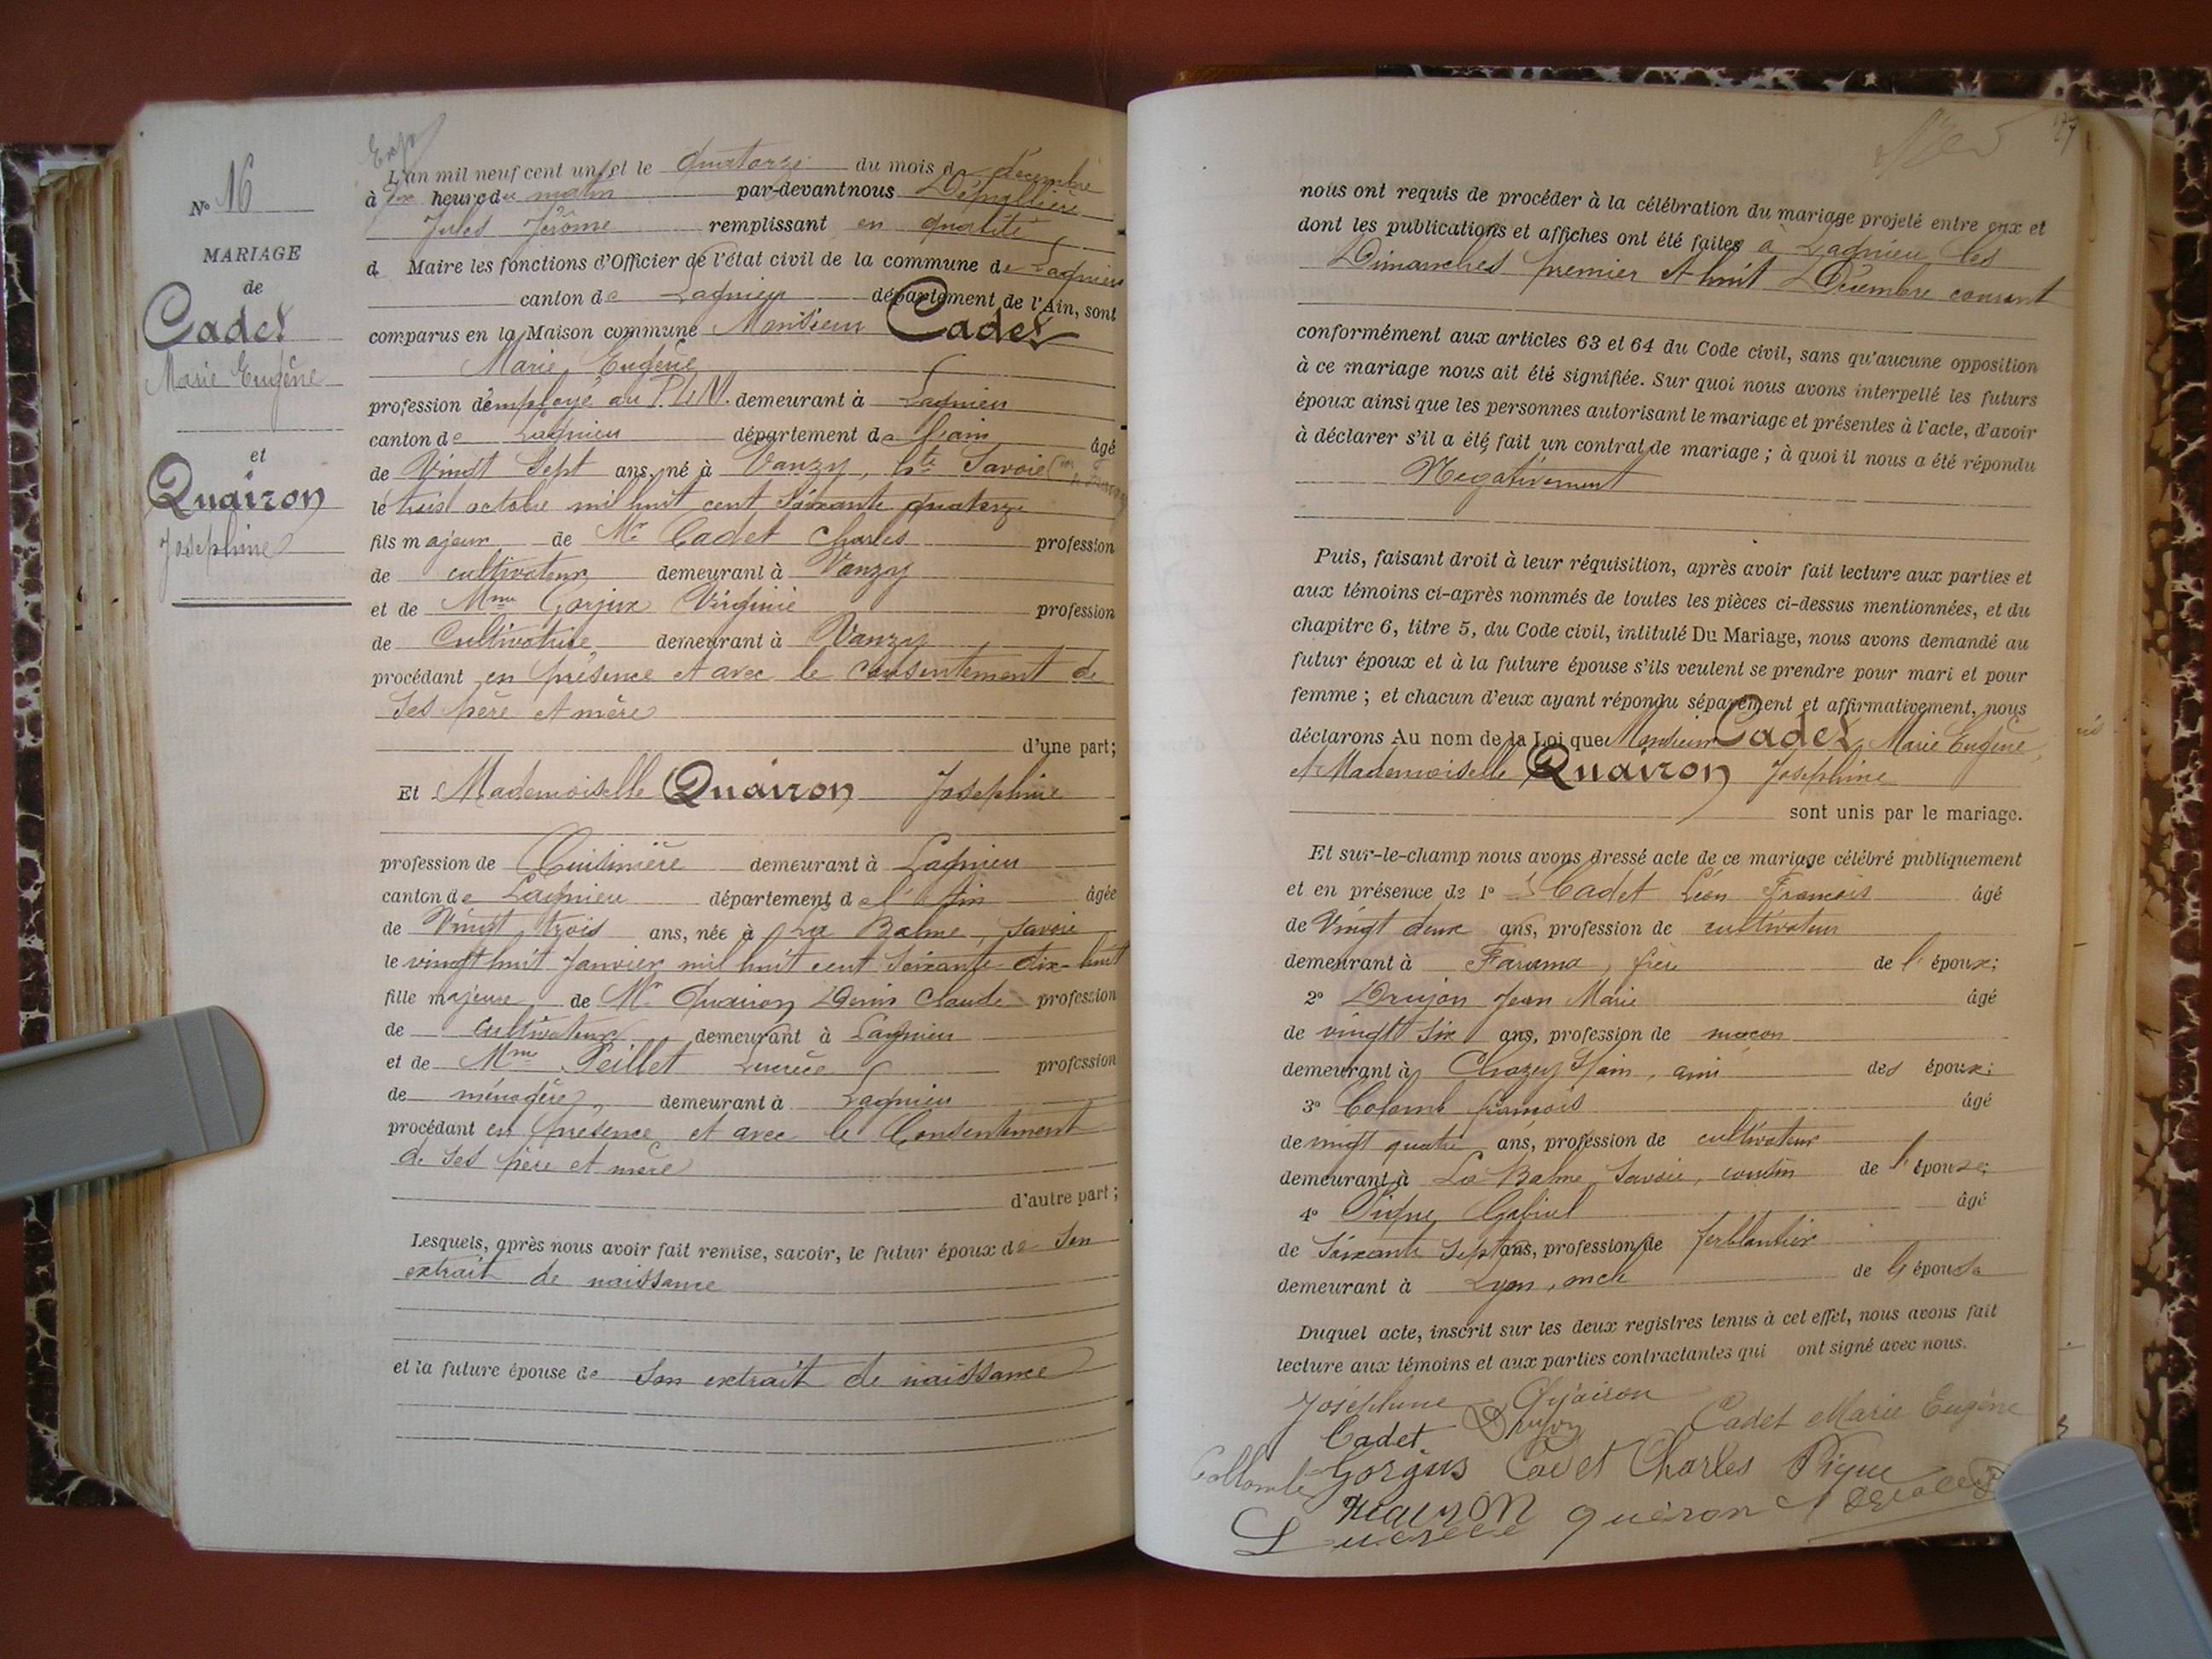 Exp
N° 16
MARIAGE
de
Cadet
Marie Eugène
et
Quairon
Josephine
L'an mil neuf cent un et le quatorze du mois de décembre
à dix heures du matin par-devant nous Dépallière
Jules Jérôme remplissant en qualité
de Maire les fonctions d'Officier de l'état civil de la commune de Lagnieu
canton de Lagnieu département de l'Ain, sont
comparus en la Maison commune Monsieur Cadet
Marie Eugène
profession d'employé au P.L.M. demeurant à Lagnieu
canton de Lagnieu département de l'ain âgé
de Vingt Sept ans, né à Vanzy, Hte Savoie
le trois octobre mil huit cent soixante quatorze
fils majeur de Mr Cadet Charles profession
de cultivateur demeurant à Vanzy
et de Mme Gorjux Virginie profession
de Cultivatrice demeurant à Vanzy
procédant en présence et avec le consentement de
ses père et mère
d'une part;
Et Mademoiselle Quairon Josephine
profession de Cuisinière demeurant à Lagnieu
canton de Lagnieu département de l'Ain âgée
de Vingt trois ans, née à La Balme, Savoie
le vingt huit Janvier mil huit cent soixante dix-huit
fille majeure de Mr Quairon Denis Claude profession
de cultivateur demeurant à Lagnieu
et de Mme Peillet Lucrèce profession
de ménagère, demeurant à Lagnieu
procédant en présence et avec le Consentement
de ses père et mère
d'autre part;
Lesquels, après nous avoir fait remise, savoir, le futur époux de Son
extrait de naissance
et la future épouse de Son extrait de naissance
nous ont requis de procéder à la célébration du mariage projeté entre eux et
dont les publications et affiches ont été faites à Lagnieu les
Dimanches premier et huit Décembre courant
conformément aux articles 63 et 64 du Code civil, sans qu'aucune opposition
à ce mariage nous ait été signifiée. Sur quoi nous avons interpellé les futurs
époux ainsi que les personnes autorisant le mariage et présentes à l'acte, d'avoir
à déclarer s'il a été fait un contrat de mariage; à quoi il nous a été répondu
Negativement
Puis, faisant droit à leur réquisition, après avoir fait lecture aux parties et
aux témoins ci-après nommés de toutes les pièces ci-dessus mentionnées, et du
chapitre 6, titre 5, du Code civil, intitulé Du Mariage, nous avons demandé au
futur époux et à la future épouse s'ils veulent se prendre pour mari et pour
femme; et chacun d'eux ayant répondu séparément et affirmativement, nous
déclarons Au nom de la Loi que Monsieur Cadet Marie Eugène,
et Mademoiselle Quairon Josephine
sont unis par le mariage.
Et sur-le-champ nous avons dressé acte de ce mariage célébré publiquement
et en présence de 1° Cadet Léon François âgé
de Vingt deux ans, profession de cultivateur
demeurant à frère de l'époux;
2° Drujon Jean Marie âgé
de vingt six ans, profession de maçon
demeurant à Chazey S/ain, ami des époux;
3° Colomb françois âgé
de vingt quatre ans, profession de cultivateur
demeurant à La Balme Savoie, cousin de l'épouse;
4° Pique Gabriel âgé
de Soixante Sept ans, profession de ferblantier
demeurant à Lyon, oncle de l'épouse
Duquel acte, inscrit sur les deux registres tenus à cet effet, nous avons fait
lecture aux témoins et aux parties contractantes qui ont signé avec nous.
Joséphine Quairon
Cadet Drujon Cadet Marie Eugène
Collomb Gorgus Cadet Charles Pique
Lucrece quéron